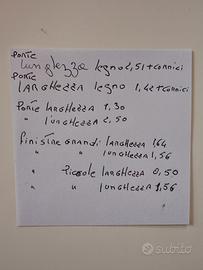 PORTE
lunghezza legno 2,51 + cornici
PORTE
lARGHEZZA legno 1,42 + cornici
PORTE lARGHEZZA 1.30
" lUNGHEZZA 2,50
finistre grandi lARGHEZZA 164
" " lUNGHEZZA 1,56
" Piccole lARGHEZZA 0,50
" " lUNGHEZZA 1,56
subito